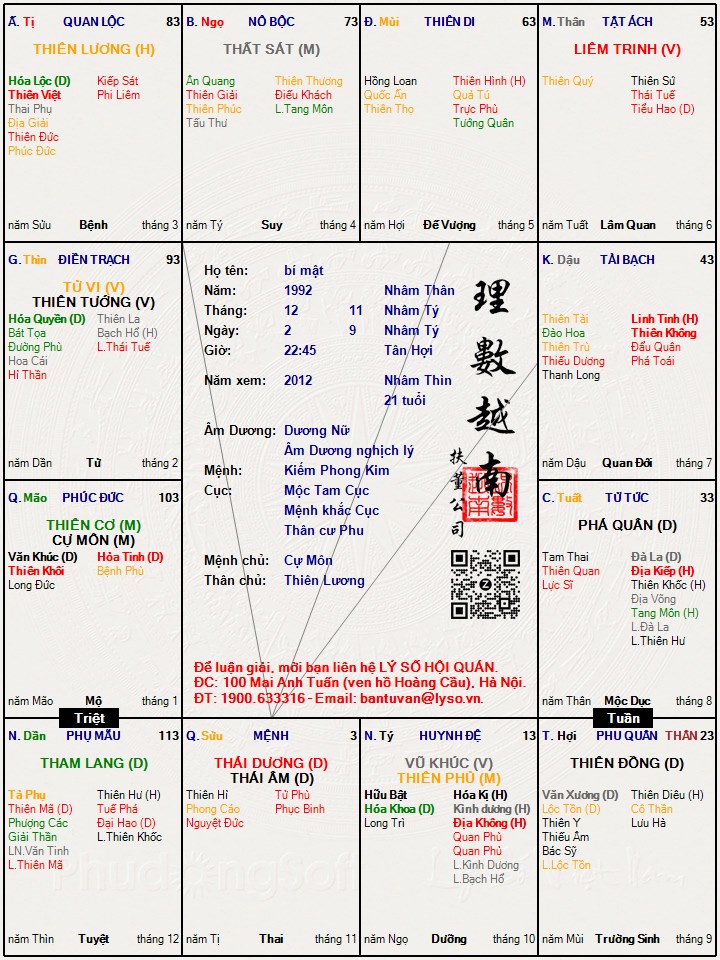 Ấ. Tị QUAN LỘC 83
THIÊN LƯƠNG (H)
Hóa Lộc (D) Kiếp Sát
Thiên Việt Phi Liêm
Thai Phụ
Địa Giải
Thiên Đức
Phúc Đức
năm Sửu Bệnh tháng 3
B. Ngọ NÔ BỘC 73
THẤT SÁT (M)
Ân Quang Thiên Thương
Thiên Giải Điếu Khách
Thiên Phúc L.Tang Môn
Tấu Thư
năm Tý Suy tháng 4
Đ. Mùi THIÊN DI 63
Hồng Loan Thiên Hình (H)
Quốc Ấn Quả Tú
Thiên Thọ Trực Phù
Tướng Quân
năm Hợi Đế Vượng tháng 5
M. Thân TẬT ÁCH 53
LIÊM TRINH (V)
Thiên Quý Thiên Sứ
Thái Tuế
Tiểu Hao (D)
năm Tuất Lâm Quan tháng 6
G. Thìn ĐIỀN TRẠCH 93
TỬ VI (V)
THIÊN TƯỚNG (V)
Hóa Quyền (D) Thiên La
Bát Tọa Bạch Hổ (H)
Đường Phù L.Thái Tuế
Hoa Cái
Hỉ Thần
năm Dần Tử tháng 2
Họ tên: bí mật
Năm: 1992 Nhâm Thân
Tháng: 12 11 Nhâm Tý
Ngày: 2 9 Nhâm Tý
Giờ: 22:45 Tân Hợi
Năm xem: 2012 Nhâm Thìn
21 tuổi
Âm Dương: Dương Nữ
Âm Dương nghịch lý
Mệnh: Kiếm Phong Kim
Cục: Mộc Tam Cục
Mệnh khắc Cục
Thân cư Phu
Mệnh chủ: Cự Môn
Thân chủ: Thiên Lương
理數越南
扶董公司
Để luận giải, mời bạn liên hệ LÝ SỐ HỘI QUÁN.
ĐC: 100 Mai Anh Tuấn (ven hồ Hoàng Cầu), Hà Nội.
ĐT: 1900.633316 - Email: bantuvan@lyso.vn.
K. Dậu TÀI BẠCH 43
Thiên Tài Linh Tinh (H)
Đào Hoa Thiên Không
Thiên Trù Đẩu Quân
Thiếu Dương Phá Toái
Thanh Long
năm Dậu Quan Đới tháng 7
Q. Mão PHÚC ĐỨC 103
THIÊN CƠ (M)
CỰ MÔN (M)
Văn Khúc (D) Hỏa Tinh (D)
Thiên Khôi Bệnh Phù
Long Đức
năm Mão Mộ tháng 1
C. Tuất TỬ TỨC 33
PHÁ QUÂN (D)
Tam Thai Đà La (D)
Thiên Quan Địa Kiếp (H)
Lực Sĩ Thiên Khốc (H)
Địa Võng
Tang Môn (H)
L.Đà La
L.Thiên Hư
năm Thân Mộc Dục tháng 8
Triệt
Tuần
N. Dần PHỤ MẪU 113
THAM LANG (D)
Tả Phụ Thiên Hư (H)
Thiên Mã (D) Tuế Phá
Phượng Các Đại Hao (D)
Giải Thần L.Thiên Khốc
LN.Văn Tinh
L.Thiên Mã
năm Thìn Tuyệt tháng 12
Q. Sửu MỆNH 3
THÁI DƯƠNG (D)
THÁI ÂM (D)
Thiên Hỉ Tử Phù
Phong Cáo Phục Binh
Nguyệt Đức
năm Tị Thai tháng 11
N. Tý HUYNH ĐỆ 13
VŨ KHÚC (V)
THIÊN PHỦ (M)
Hữu Bật Hóa Kị (H)
Hóa Khoa (D) Kình dương (H)
Long Trì Địa Không (H)
Quan Phù
Quan Phủ
L.Kình Dương
L.Bạch Hổ
năm Ngọ Dưỡng tháng 10
T. Hợi PHU QUÂN THÂN 23
THIÊN ĐỒNG (D)
Văn Xương (D) Thiên Diêu (H)
Lộc Tồn (D) Cô Thần
Thiên Y Lưu Hà
Thiếu Âm
Bác Sỹ
L.Lộc Tồn
năm Mùi Trường Sinh tháng 9